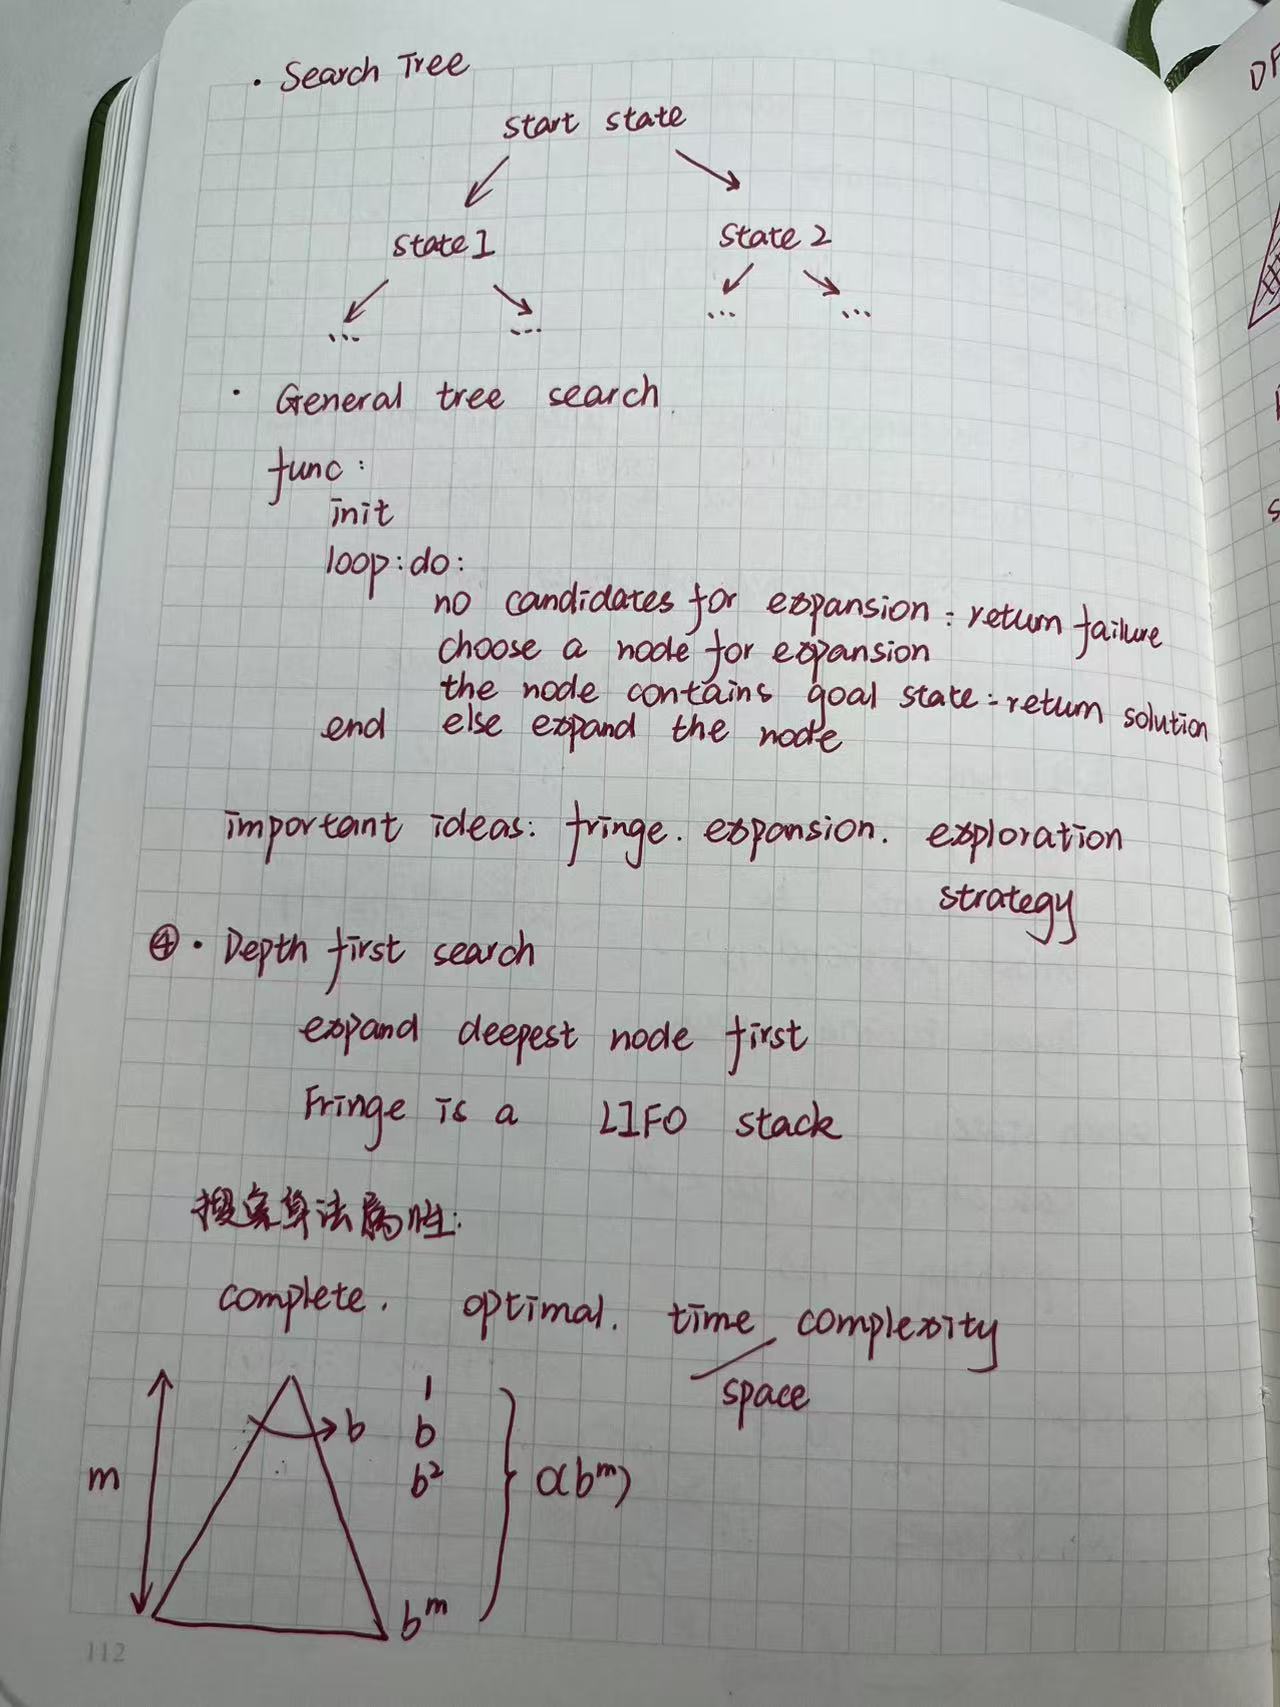 · Search Tree
start state
state 1 state 2
... ... ... ...
· General tree search
func :
init
loop : do :
no candidates for expansion : return failure
choose a node for expansion
the node contains goal state : return solution
end else expand the node
important ideas: fringe. expansion. exploration
strategy
④ · Depth first search
expand deepest node first
Fringe is a LIFO stack
搜索算法属性:
complete. optimal. time complexity
space
1
b b
b²
m O(b^m)
b^m
112